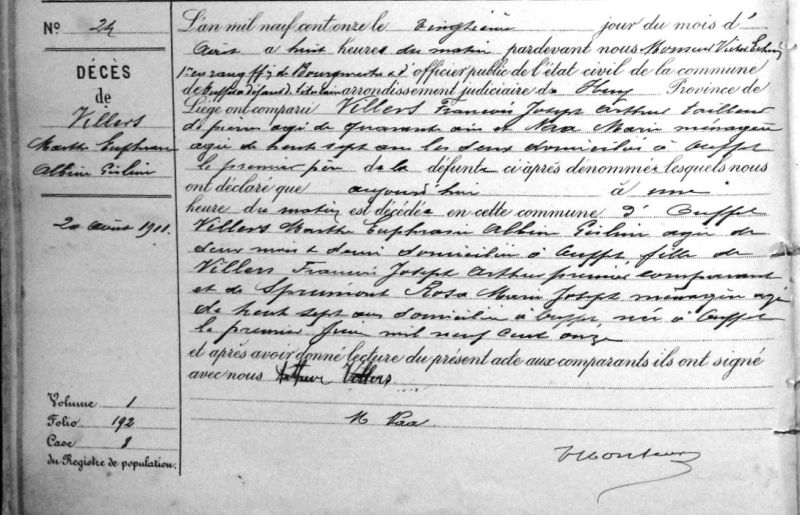 N° 24
DÉCÈS
de
Villers
Marthe Euphrasie
Albin Gislin
20 Août 1911.
Volume 1
Folio 192
Case 8
du Registre de population.
L'an mil neuf cent onze le vingtième jour du mois d'
Août à huit heures du matin pardevant nous Monsieur Victor
de Bourgmestre d'officier public de l'état civil de la commune
de Ouffet arrondissement judiciaire de Huy Province de
Liége ont comparu Villers François Joseph Arthur tailleur
de pierres agé de quarante ans et Vaa Marie ménagère
agée de sept ans les deux domiciliés à Ouffet
le premier père de la défunte ci après dénommée lesquels nous
ont déclaré que aujourd'hui à une
heure du matin est décédée en cette commune d'Ouffet
Villers Marthe Euphrasie Albin Gislin agée de
deux mois et demi domiciliée à Ouffet fille de
Villers François Joseph Arthur premier comparant
et de Sprumont Rosa Marie Joseph ménagère agée
de sept ans domiciliée à Ouffet, née à Ouffet
le premier Juin mil neuf cent onze
et après avoir donné lecture du présent acte aux comparants ils ont signé
avec nous Arthur Villers
M Vaa